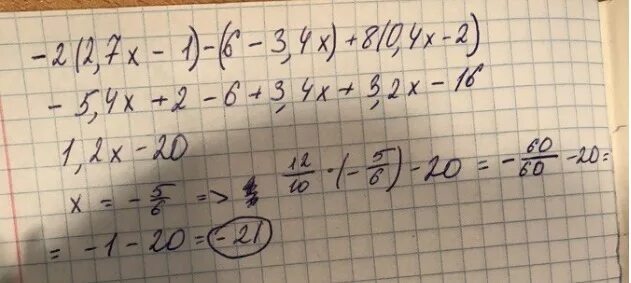 -2(2,7x - 1) - (6 - 3,4x) + 8(0,4x - 2)
- 5,4x + 2 - 6 + 3,4x + 3,2x - 16
1,2x - 20
x = - 5/6 => 12/10 · (- 5/6) - 20 = - 60/60 - 20 =
= -1 - 20 = -21